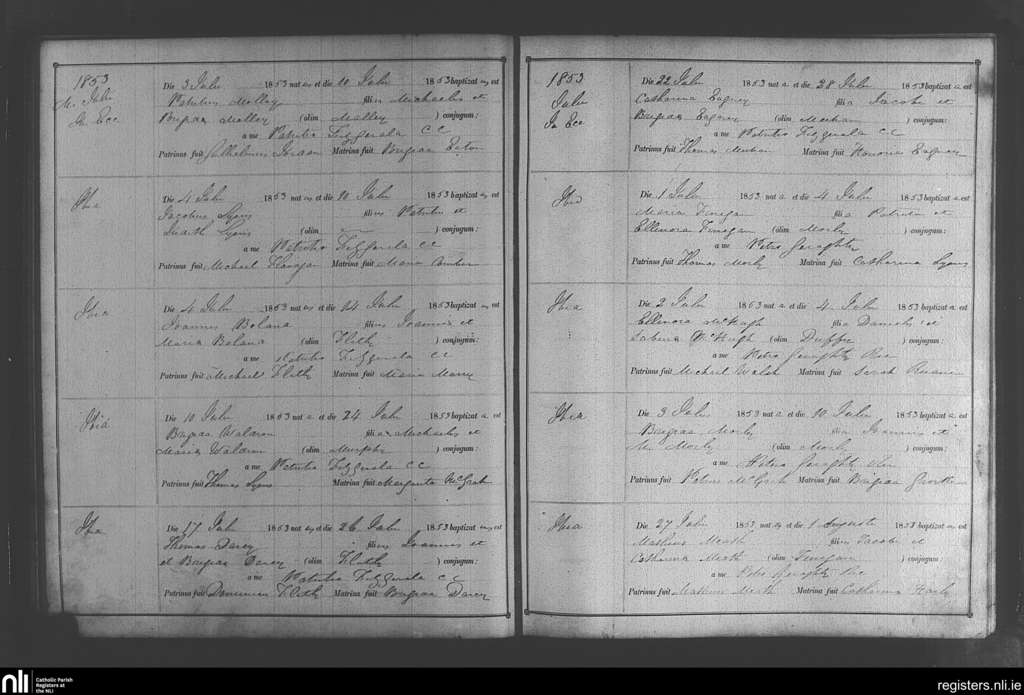 1853
July
In Ecc
Die 3 July 1853 nat us et die 10 July 1853 baptizat us est
Patritius Molloy filius Michaelis et
Brigida Molloy (olim Malley) conjugum:
a me Patritio Fitzgerald CC
Patrinus fuit Gulhelmus Jordan Matrina fuit Brigida Eaton
Ibid
Die 4 July 1853 nat us et die 10 July 1853 baptizat us est
Jacobus Lyons filius Patritii et
Judith Lyons (olim ) conjugum:
a me Patritio Fitzgerald CC
Patrinus fuit Michael Flanagan Matrina fuit Maria
Ibid
Die 4 July 1853 nat us et die 14 July 1853 baptizat us est
Joannes Boland filius Joannis et
Maria Boland (olim ) conjugum:
a me Patritio Fitzgerald CC
Patrinus fuit Michael Matrina fuit Maria
Ibid
Die 10 July 1853 nat a et die 24 July 1853 baptizat a est
Brigida Waldron filia Michaelis et
Maria Waldron (olim Murphy) conjugum:
a me Patritio Fitzgerald CC
Patrinus fuit Thomas Lyons Matrina fuit Margarita McGrath
Ibid
Die 17 July 1853 nat us et die 26 July 1853 baptizat us est
Thomas Darcy filius Joannis et
et Brigida Darcy (olim ) conjugum:
a me Patritio Fitzgerald CC
Patrinus fuit Matrina fuit Brigida Darcy
1853
July
In Ecc
Die 22 July 1853 nat a et die 28 July 1853 baptizat a est
Catharina filia Jacobi et
Brigida (olim Meehan) conjugum:
a me Patritio Fitzgerald CC
Patrinus fuit Thomas Matrina fuit Honoria
Ibid
Die 1 July 1853 nat a et die 4 July 1853 baptizat a est
Maria Finegan filia Patritii et
Ellenora Finegan (olim Morly) conjugum:
a me Petro Geraghty
Patrinus fuit Thomas Morly Matrina fuit Catharina Lyons
Ibid
Die 2 July 1853 nat a et die 4 July 1853 baptizat a est
Ellenora McHugh filia Danielis et
Sabina McHugh (olim Duffy) conjugum:
a me Petro Geraghty
Patrinus fuit Michael Walsh Matrina fuit Sarah Ruane
Ibid
Die 3 July 1853 nat a et die 10 July 1853 baptizat a est
Brigida Morly filia Joannis et
M Morly (olim Morly) conjugum:
a me Petro Geraghty
Patrinus fuit Matrina fuit Brigida
Ibid
Die 27 July 1853 nat us et die 1 Augusti 1853 baptizat us est
Mathias Meath filius Jacobi et
Catharina Meath (olim Finegan) conjugum:
a me Petro Geraghty
Patrinus fuit Meath Matrina fuit Catharina
nli
Catholic Parish
Registers at
the NLI
registers.nli.ie